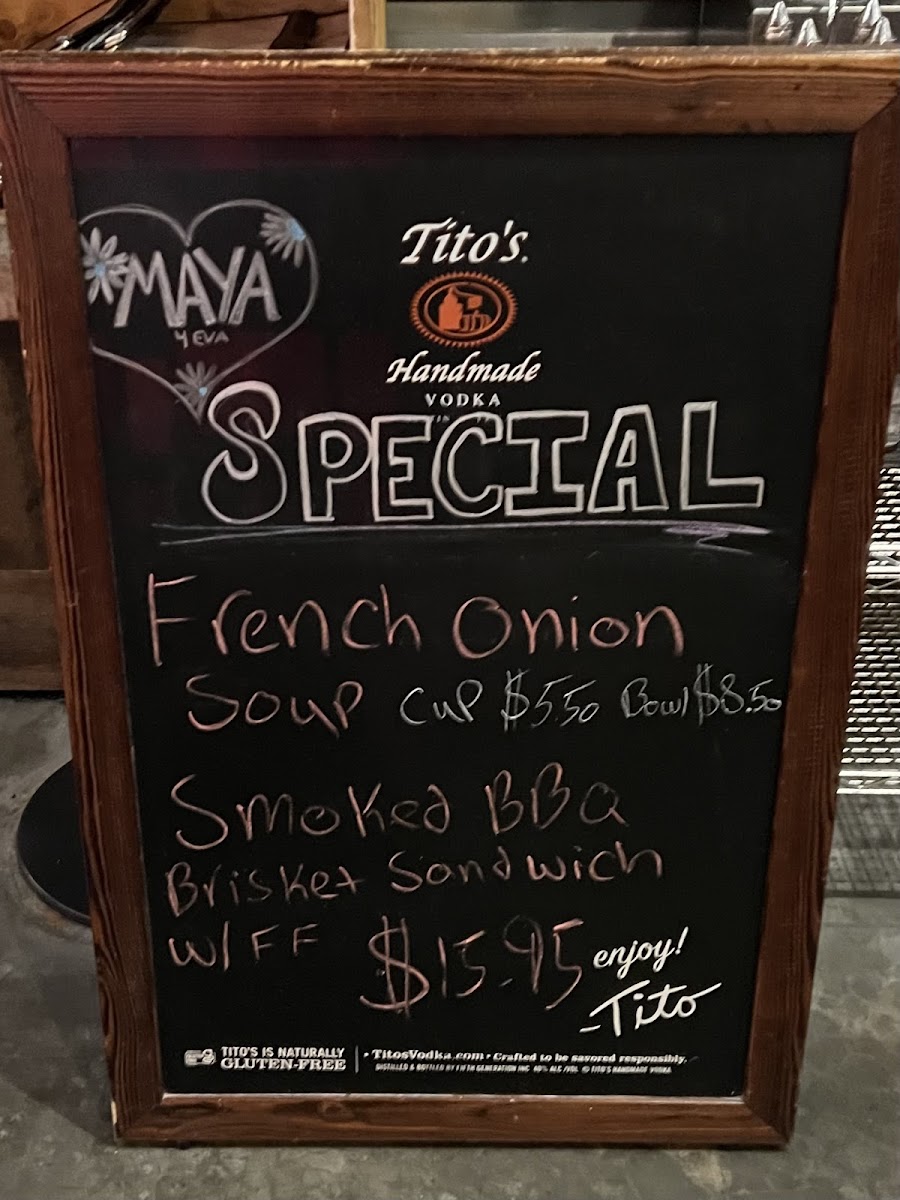 MAYA
4 EVA
Tito's
Handmade
VODKA
SPECIAL
French Onion
Soup Cup $5.50 Bowl $8.50
Smoked BBQ
Brisket Sandwich
W/FF $15.95 enjoy!
-Tito
TITO'S IS NATURALLY
GLUTEN-FREE
• TitosVodka.com • Crafted to be savored responsibly.
DISTILLED & BOTTLED BY FIFTH GENERATION INC 40% ALC./VOL. © TITO'S HANDMADE VODKA